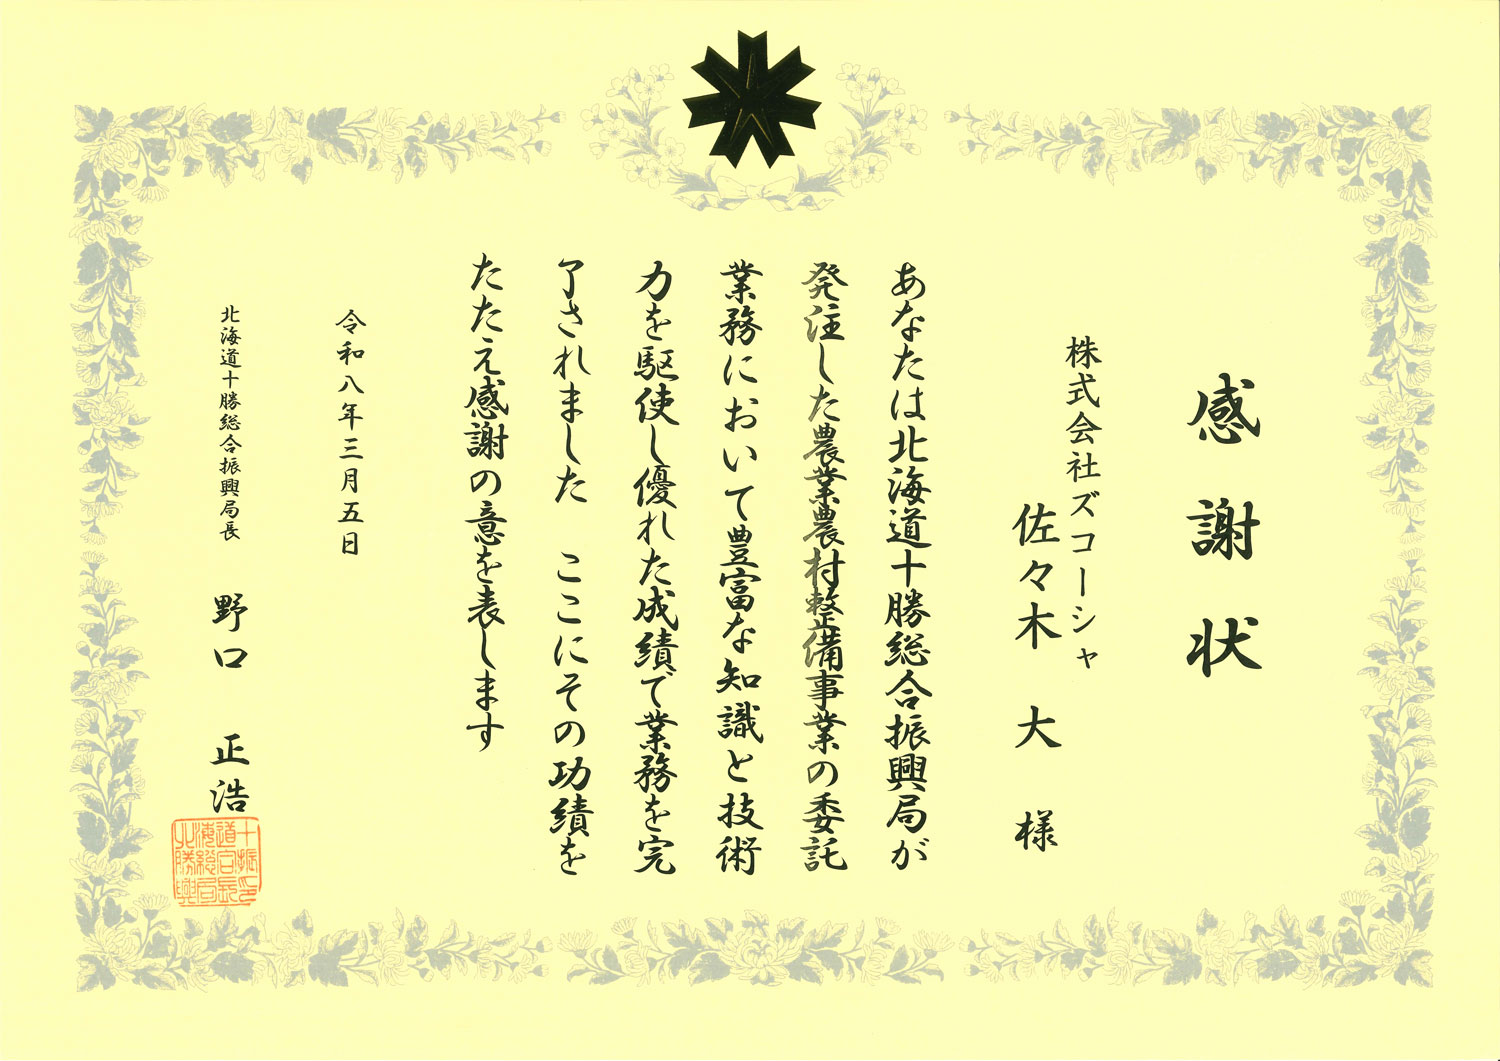 感謝状
株式会社ズコーシャ
佐々木 大 様
あなたは北海道十勝総合振興局が
発注した農業農村整備事業の委託
業務において豊富な知識と技術
力を駆使し優れた成績で業務を完
了されました ここにその功績を
たたえ感謝の意を表します
令和八年三月五日
北海道十勝総合振興局長 野口 正浩